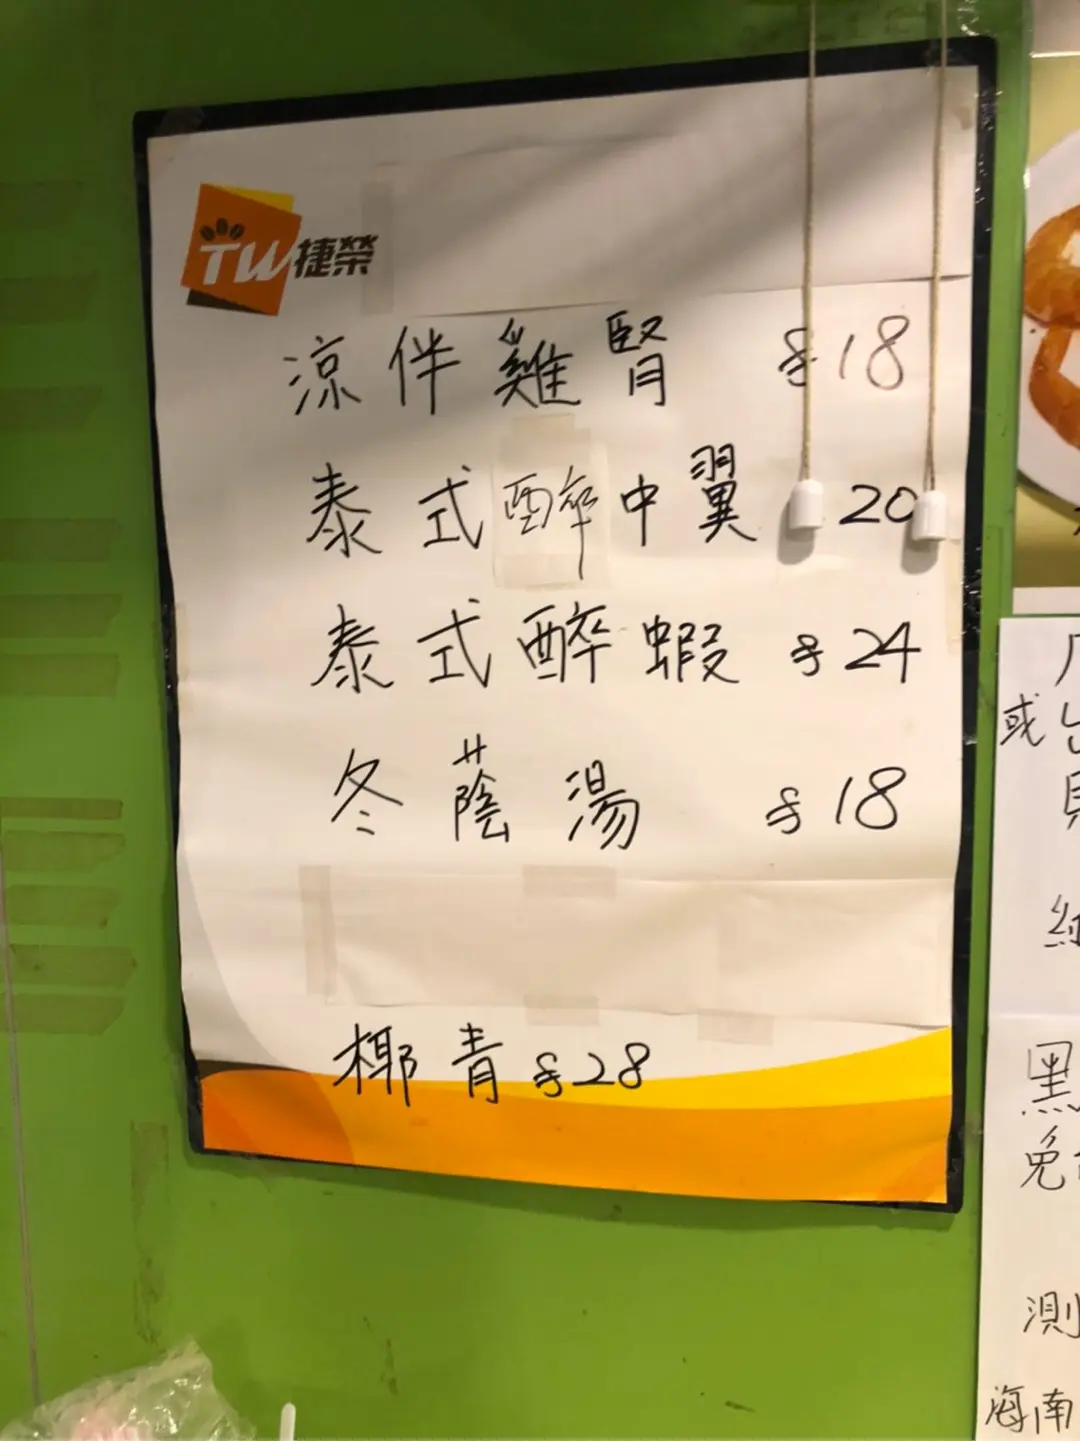 TW捷榮
涼伴雞腎 $18
泰式醉中翼 20
泰式醉蝦 $24
冬蔭湯 $18
椰青 $28
或
黑
免
測
海南